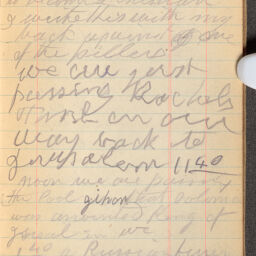 I write this with my
back against of one
of the pillers
we are just
passing Rachels
Tomb on our
way back to
Jerusalem 11 40
noon we are passing
the Pool gihon that Solomon
was anointed King of
Israel in we
a Russian